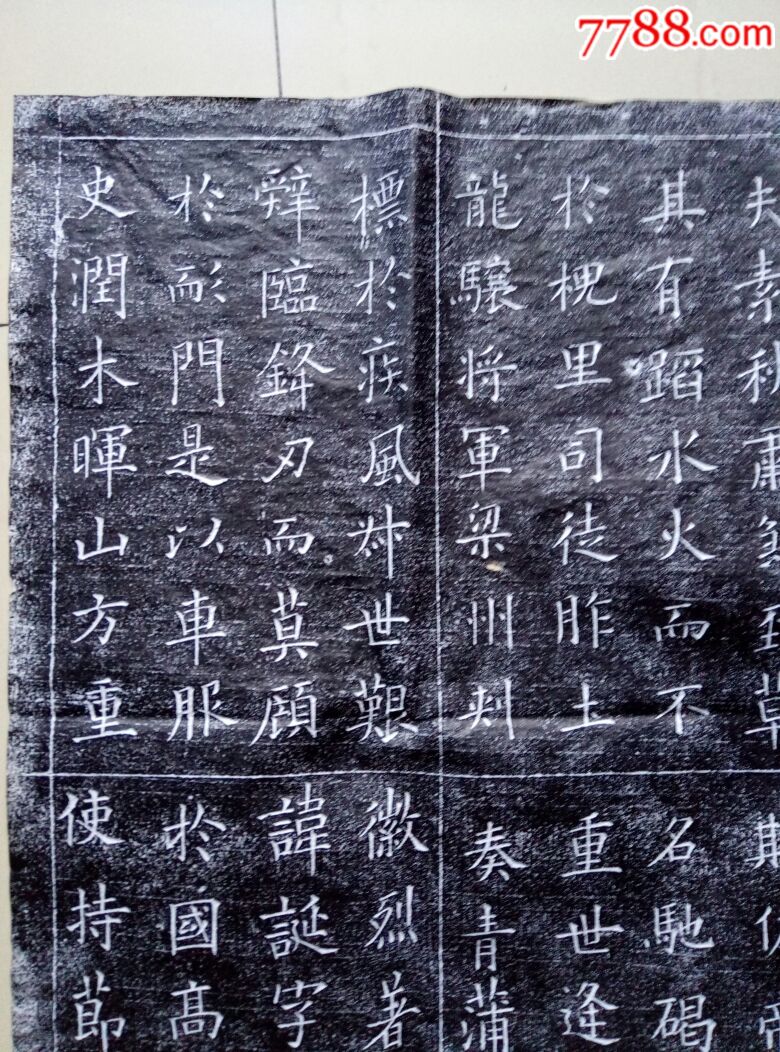 7788.com
夫素秋肅草
其有蹈水火而不
於槐里司徒胙土
龍驤将軍梁州刾
標於疾風叔世艱
辤臨鋒刃而莫顧
於耏門是以車服
史潤木暉山方重
斯
名馳碣
重世逢
奏青蒲
徽烈著
諱誕字
於國髙
使持節